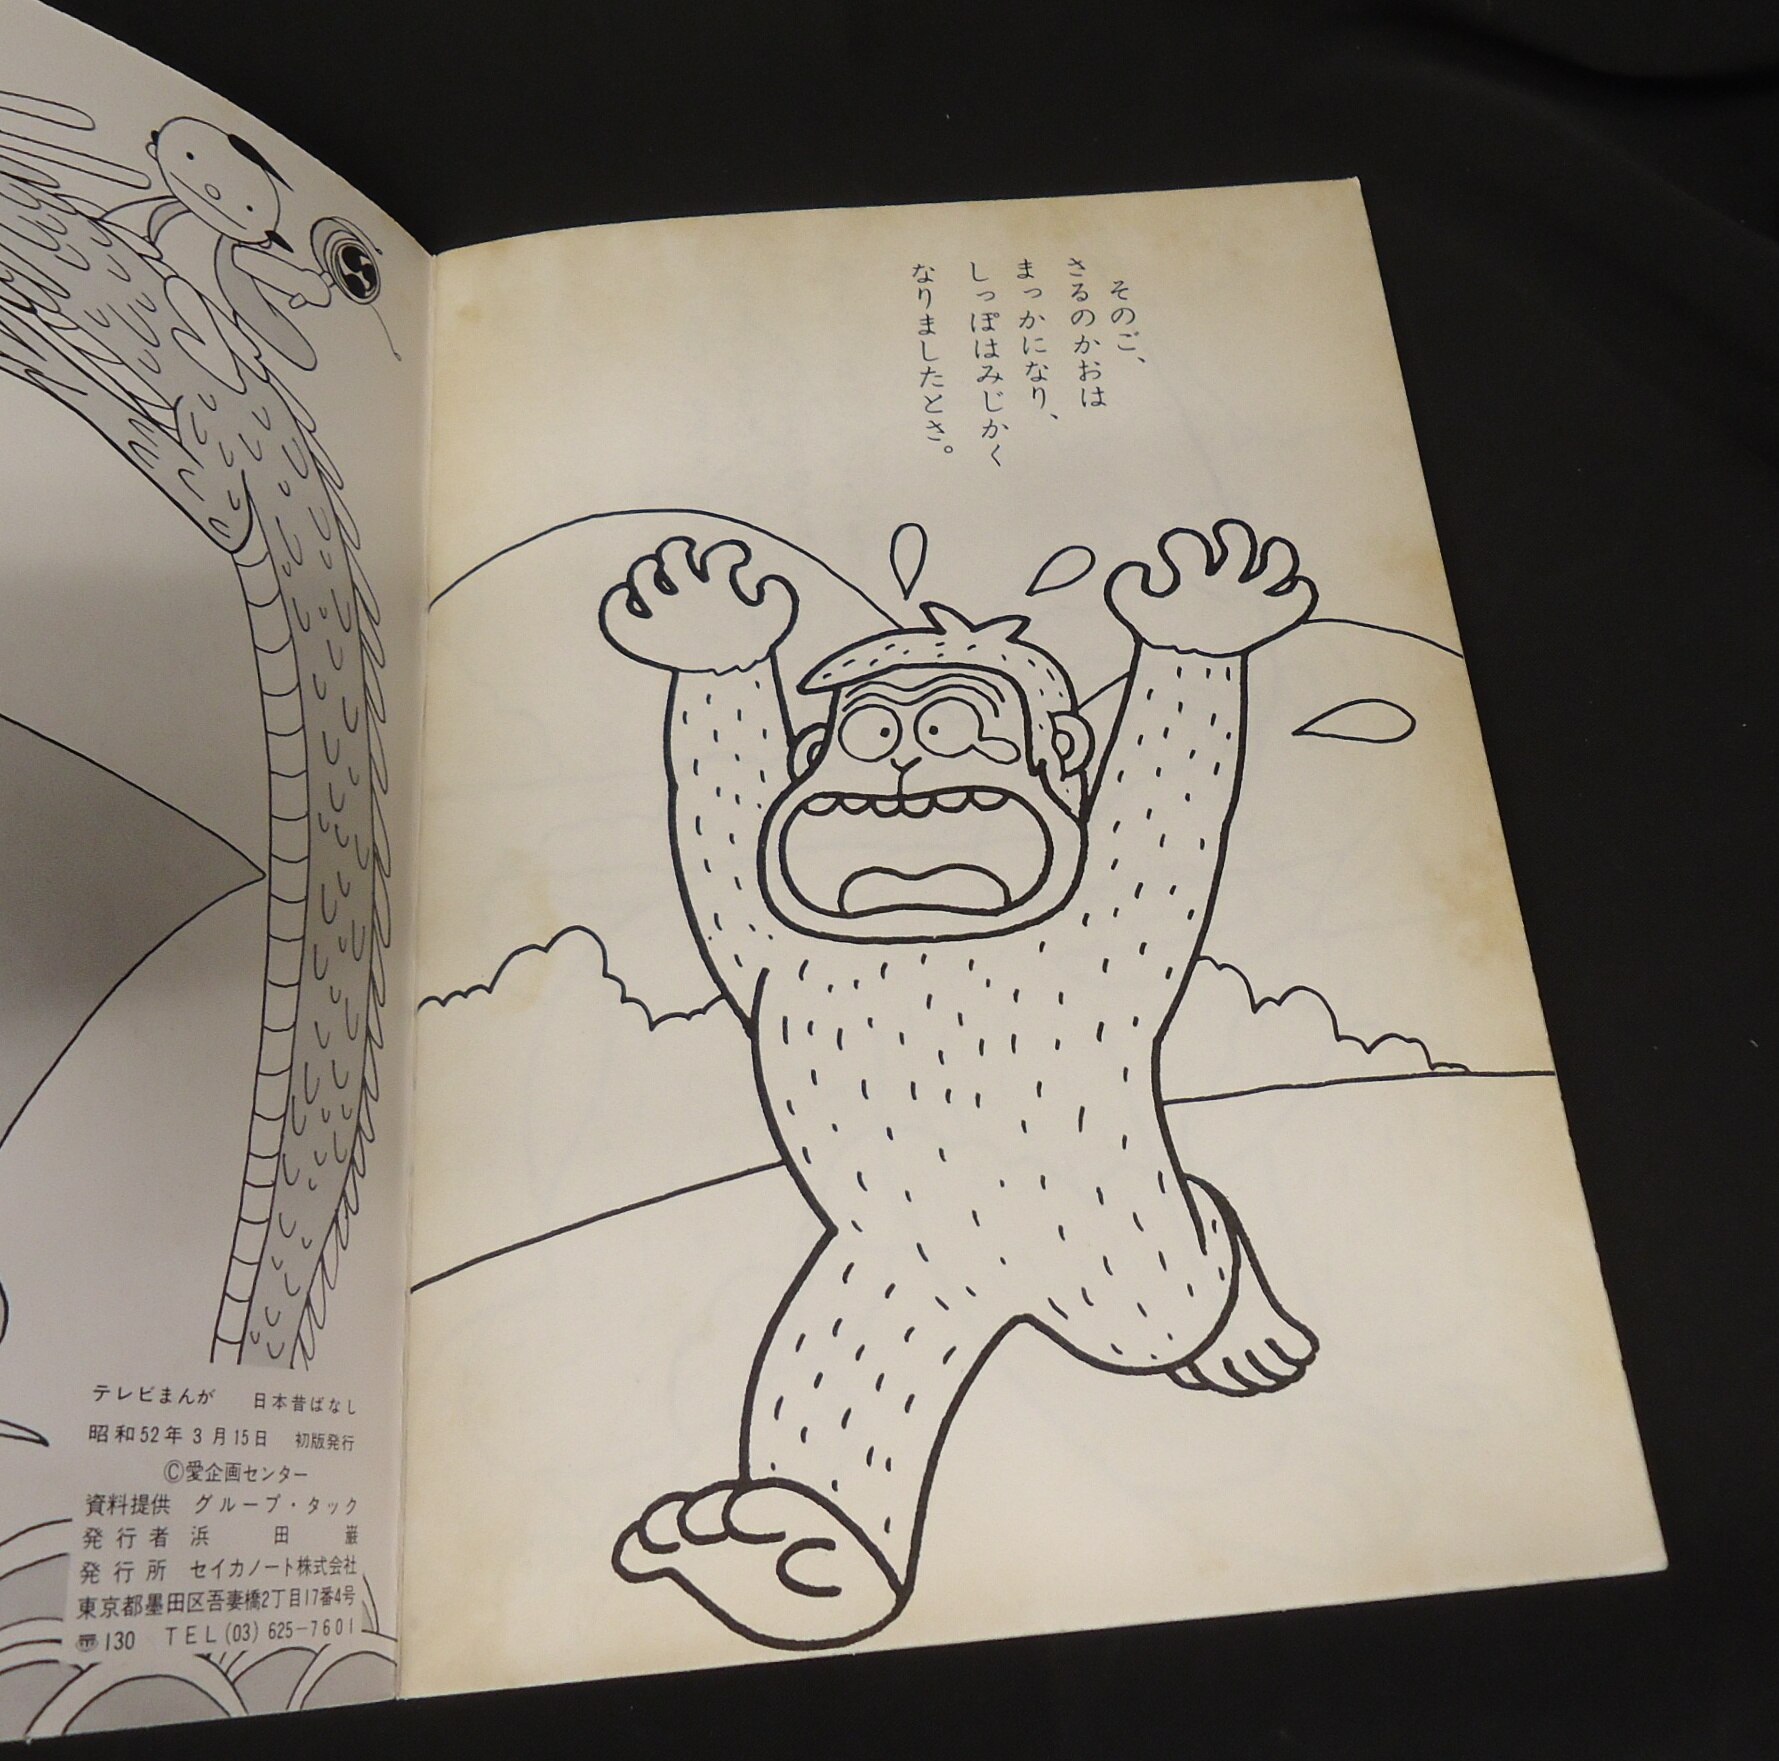 そのご、
さるのかおは
まっかになり、
しっぽはみじかく
なりましたとさ。
テレビまんが　日本昔ばなし
昭和52年3月15日　初版発行
©愛企画センター
資料提供　グループ・タック
発行者　浜田巌
発行所　セイカノート株式会社
東京都墨田区吾妻橋2丁目17番4号
〒130　TEL(03)625-7601